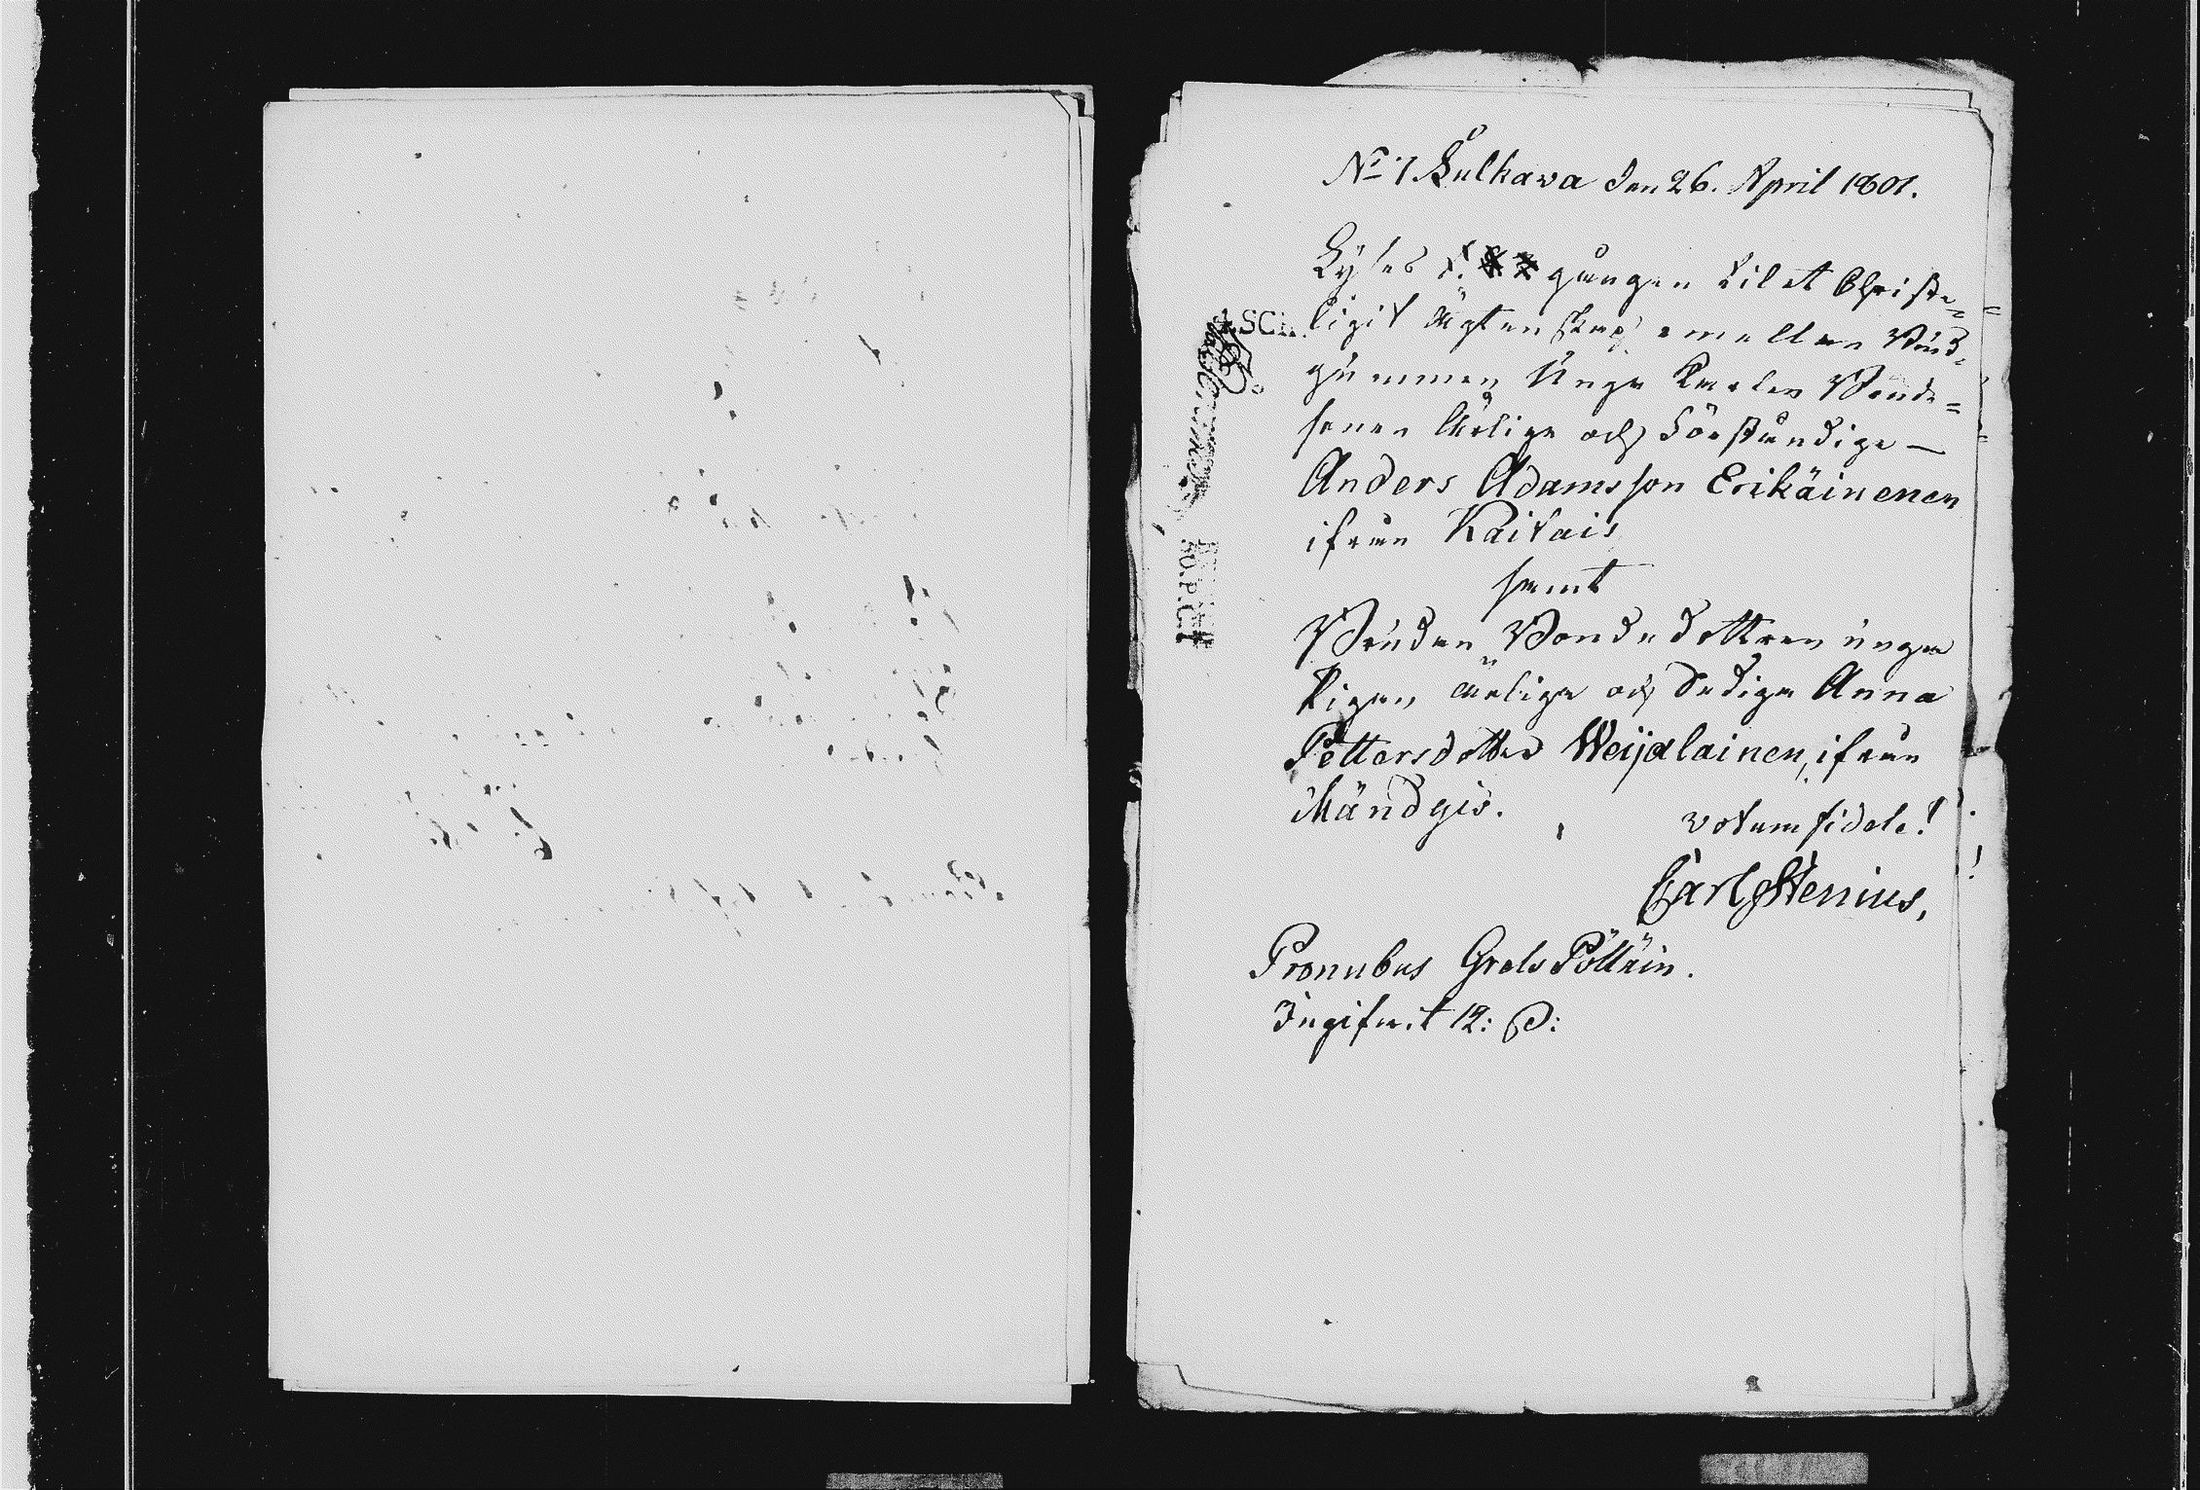 No 1 Sulkawa den 26. April 1801.
Lyses 1. gången til et Christe=
ligit Ägtenskap emellan Brud=
gummen Unga Karlen Bonde=
sonen Ärlige och Förståndige —
Anders Adamsson Erikäinenen
ifrån Kaitais
samt
Bruden Bondedottren unga
Pigan ärliga och dediga Anna
Pettersdotter Weijalainen, ifrån
Mändgis.
votum fidele!
Carl Stenius,
Pronubus Grels Pölläin.
Ingift 12: S:
SCH.
30.P.CT